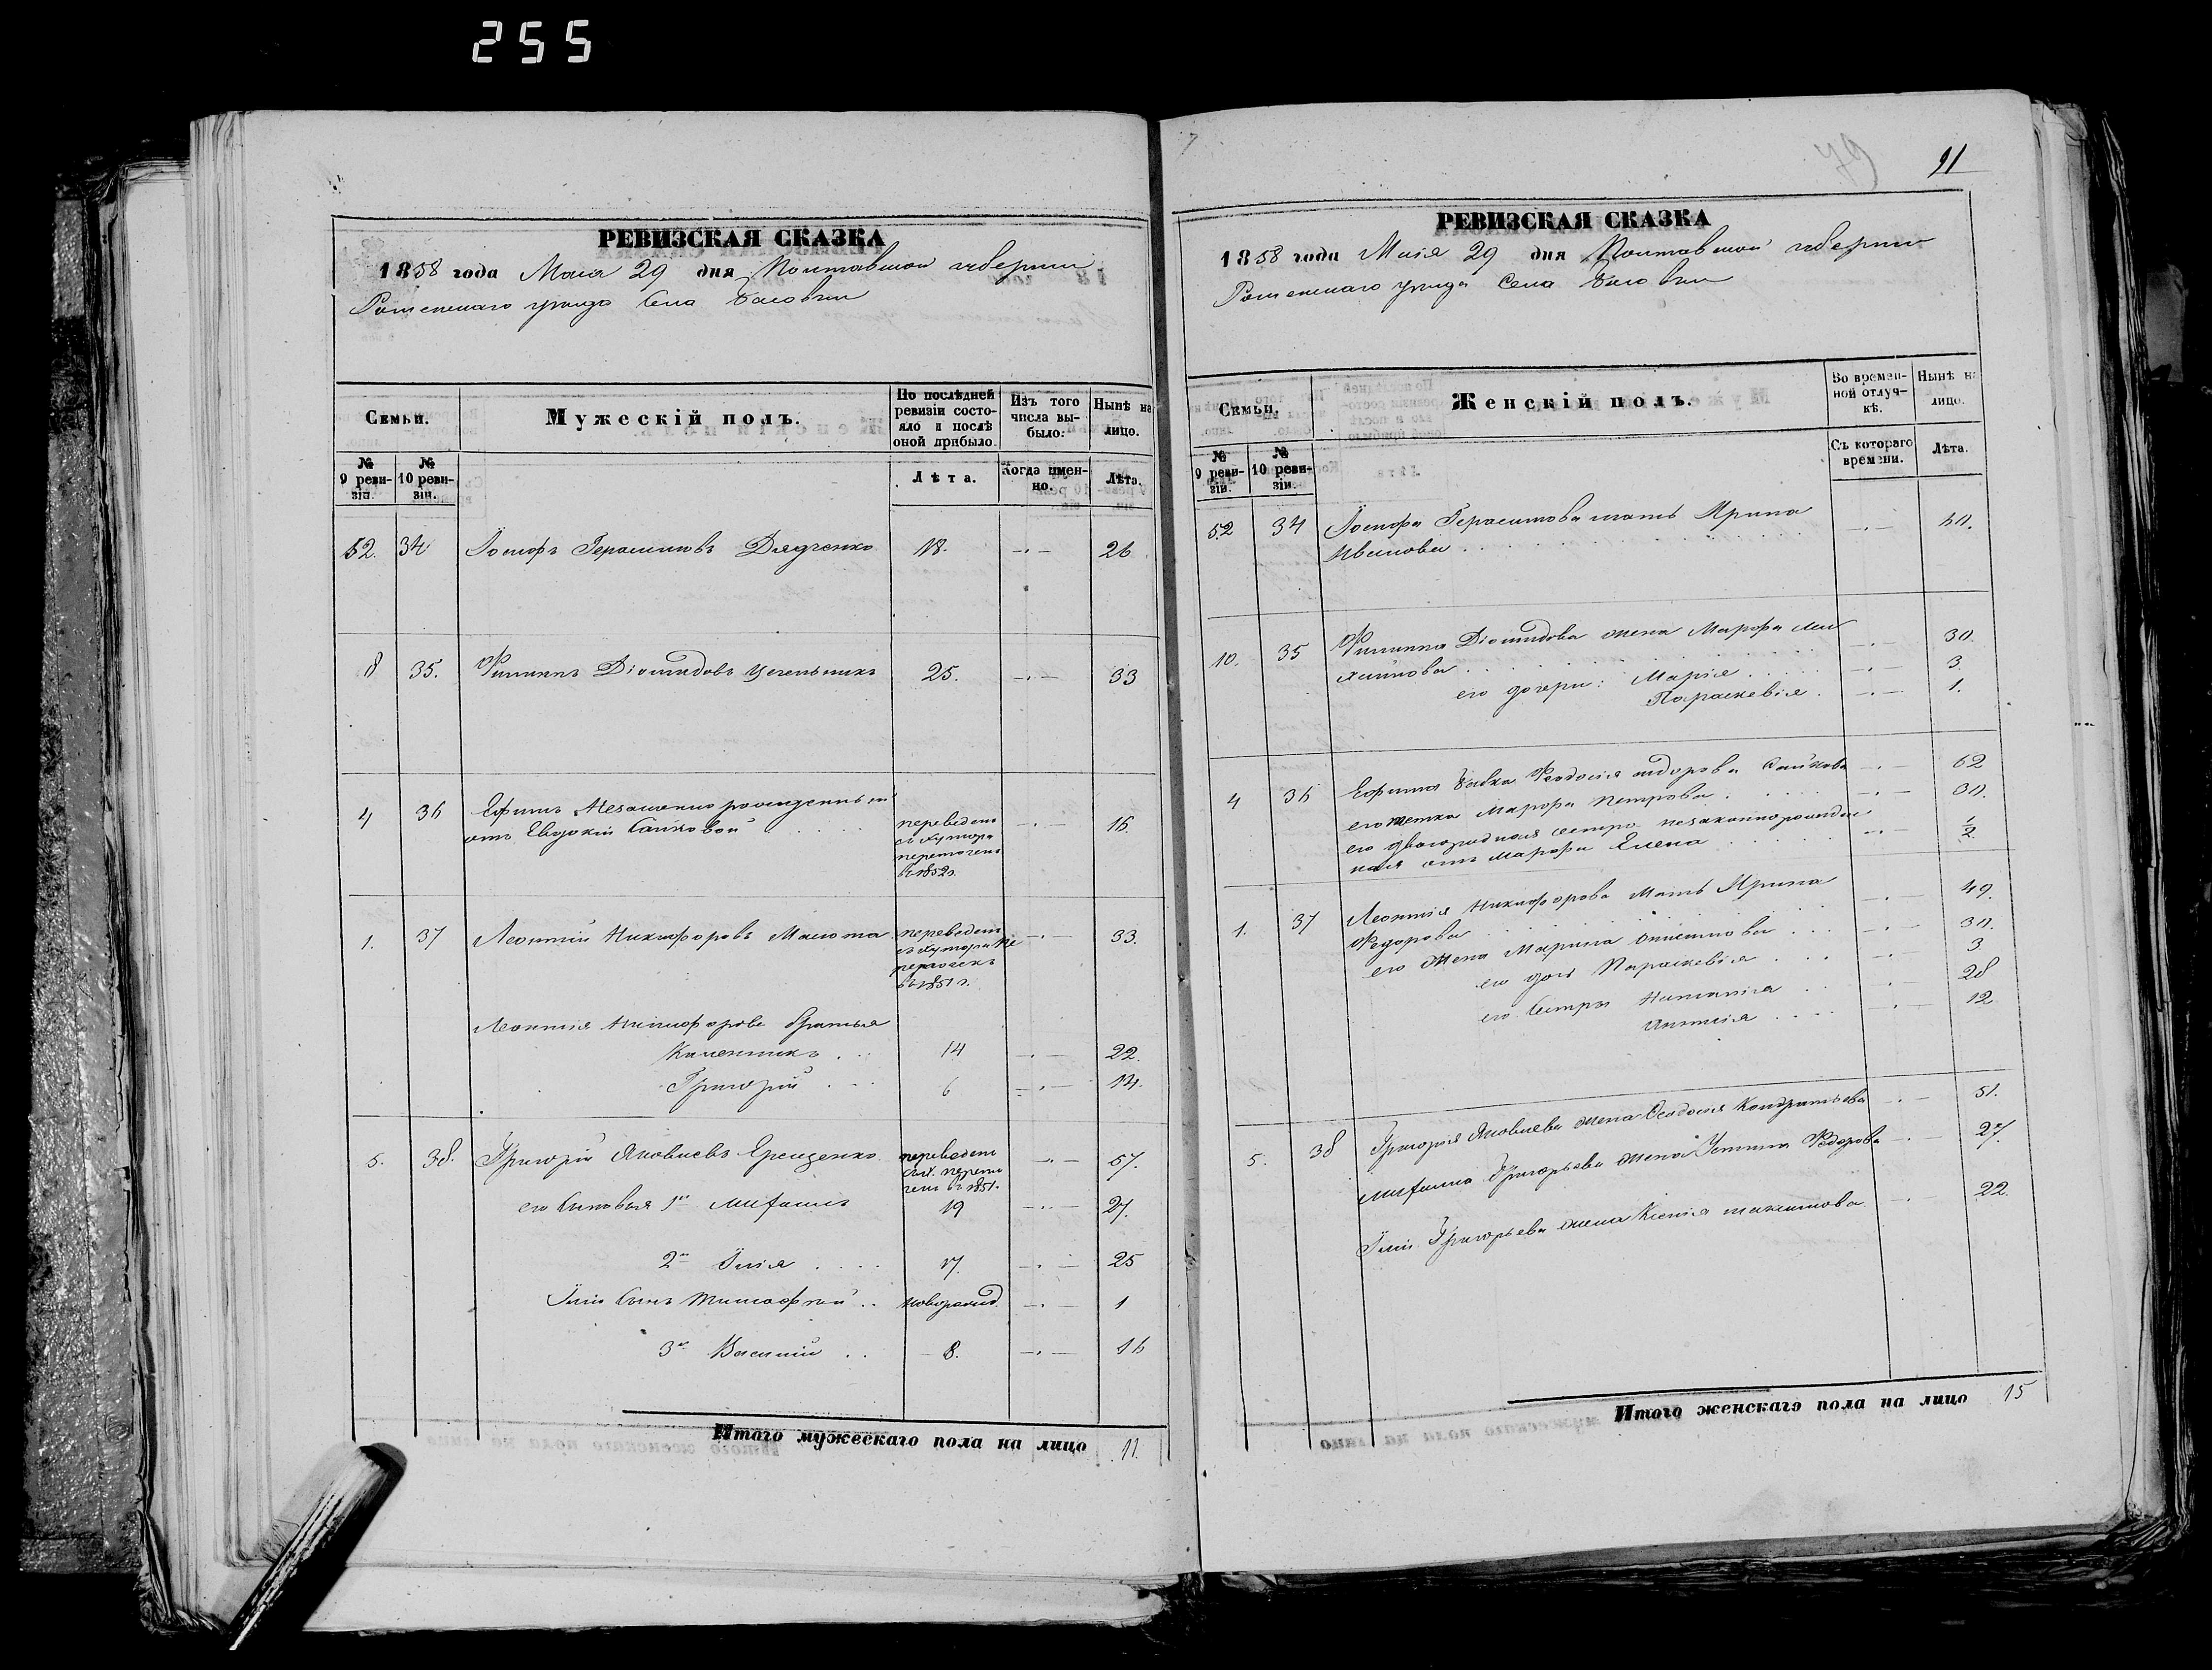 255
РЕВИЗСКАЯ СКАЗКА
1858 года Маія 29 дня Полтавской губерніи
Роменскаго уезда Села Басовки
Семьи.
Мужескій полъ.
По послѣдней ревизіи состояло и послѣ оной прибыло.
Изъ того числа выбыло:
Нынѣ на лицо.
№ 9 ревизіи.
№ 10 ревизіи.
Лѣта.
Когда именно.
Лѣта.
52. 34 Іосифъ Герасимовъ Дядченко 18. 26
8 35. Филиппъ Діомидовъ 25. 33
4 36 Ефимъ незаконнорожденный переведенъ
отъ Евдокіи Сайковой съ хутора 16.
въ 1852 г.
1. 37 Леонтій Никифоровъ Малюта переведенъ 33.
съ хутора
въ 1851 г.
Леонтія Никифорова братья
Каленникъ 14 22.
Григорій 6 14.
5. 38. Григорій Яковлевъ Грещенко переведенъ 57.
въ 1851.
его сыновья 1й Мифаилъ 19 27.
2й Илія 17. 25
Иліи сынъ Тимофтей новорожд. 1
3й Василій 8. 16
Итого мужескаго пола на лицо 11.
91
РЕВИЗСКАЯ СКАЗКА
1858 года Маія 29 дня Полтавской губерніи
Роменскаго уезда Села Басовки
Семьи.
Женскій полъ.
Во временной отлучкѣ.
Нынѣ на лицо.
№ 9 ревизіи.
№ 10 ревизіи.
Съ котораго времени.
Лѣта.
52 34 Іосифа Герасимова мать Ирина
Иванова
10. 35 Филиппа Діомидова жена Марфа 30.
его дочери: Марія 3
Параскевія 1.
4 36 Ефима бабка Феодосія Сайкова 62
его тетка Марфа Петрова 30.
его двоюродная сестра незаконнорожден
ная отъ Марфы Елена 1/2
1. 37 Леонтія Никифорова мать Ирина 49.
Федорова
его жена Марина 30.
его дочь Параскевія 3
его сестры Наталія 28
12
5. 38 Григорія Яковлева жена Феодосія Кондратьева 51.
Мифаила Григорьева жена Устина Федорова 27.
Иліи Григорьева жена Ксенія Максимова 22.
Итого женскаго пола на лицо 15